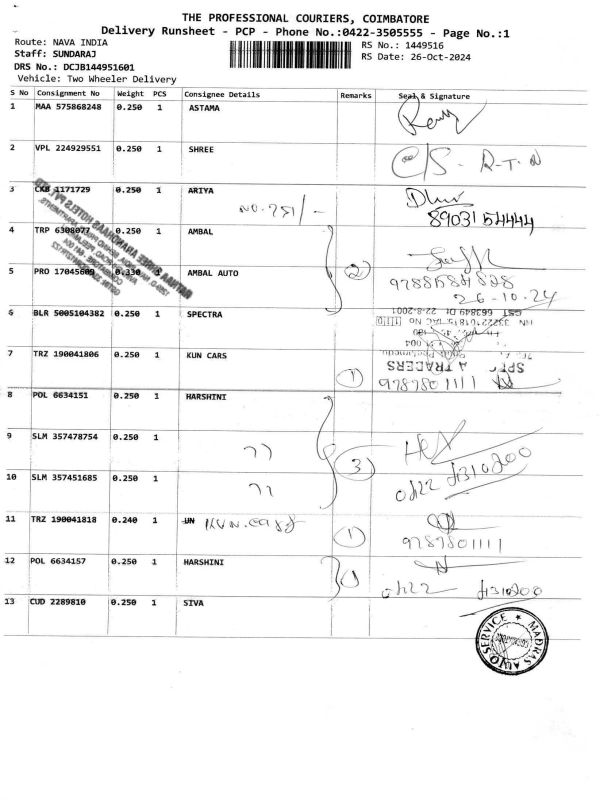 THE PROFESSIONAL COURIERS, COIMBATORE
Delivery Runsheet - PCP - Phone No.:0422-3505555 - Page No.:1
Route: NAVA INDIA
RS No.: 1449516
Staff: SUNDARAJ
RS Date: 26-Oct-2024
DRS No.: DCJB144951601
Vehicle: Two Wheeler Delivery
S No Consignment No Weight PCS Consignee Details Remarks Seal & Signature
1 MAA 575868248 0.250 1 ASTAMA
2 VPL 224929551 0.250 1 SHREE C/S - R-T-N
3 CKB 1171729 0.250 1 ARIYA
NO. 751/-
8903154444
4 TRP 6308077 0.250 1 AMBAL
5 PRO 17045609 0.330 1 AMBAL AUTO 2
26-10-24
6 BLR 5005104382 0.250 1 SPECTRA
7 TRZ 190041806 0.250 1 KUN CARS
1 9787801111
8 POL 6634151 0.250 1 HARSHINI
9 SLM 357478754 0.250 1 77 3
0422 4310200
10 SLM 357451685 0.250 1 77
11 TRZ 190041818 0.240 1 UN KUN.cars 1
9787801111
12 POL 6634157 0.250 1 HARSHINI 1
0422 4310200
13 CUD 2289810 0.250 1 SIVA
MADRAS AUTO SERVICE